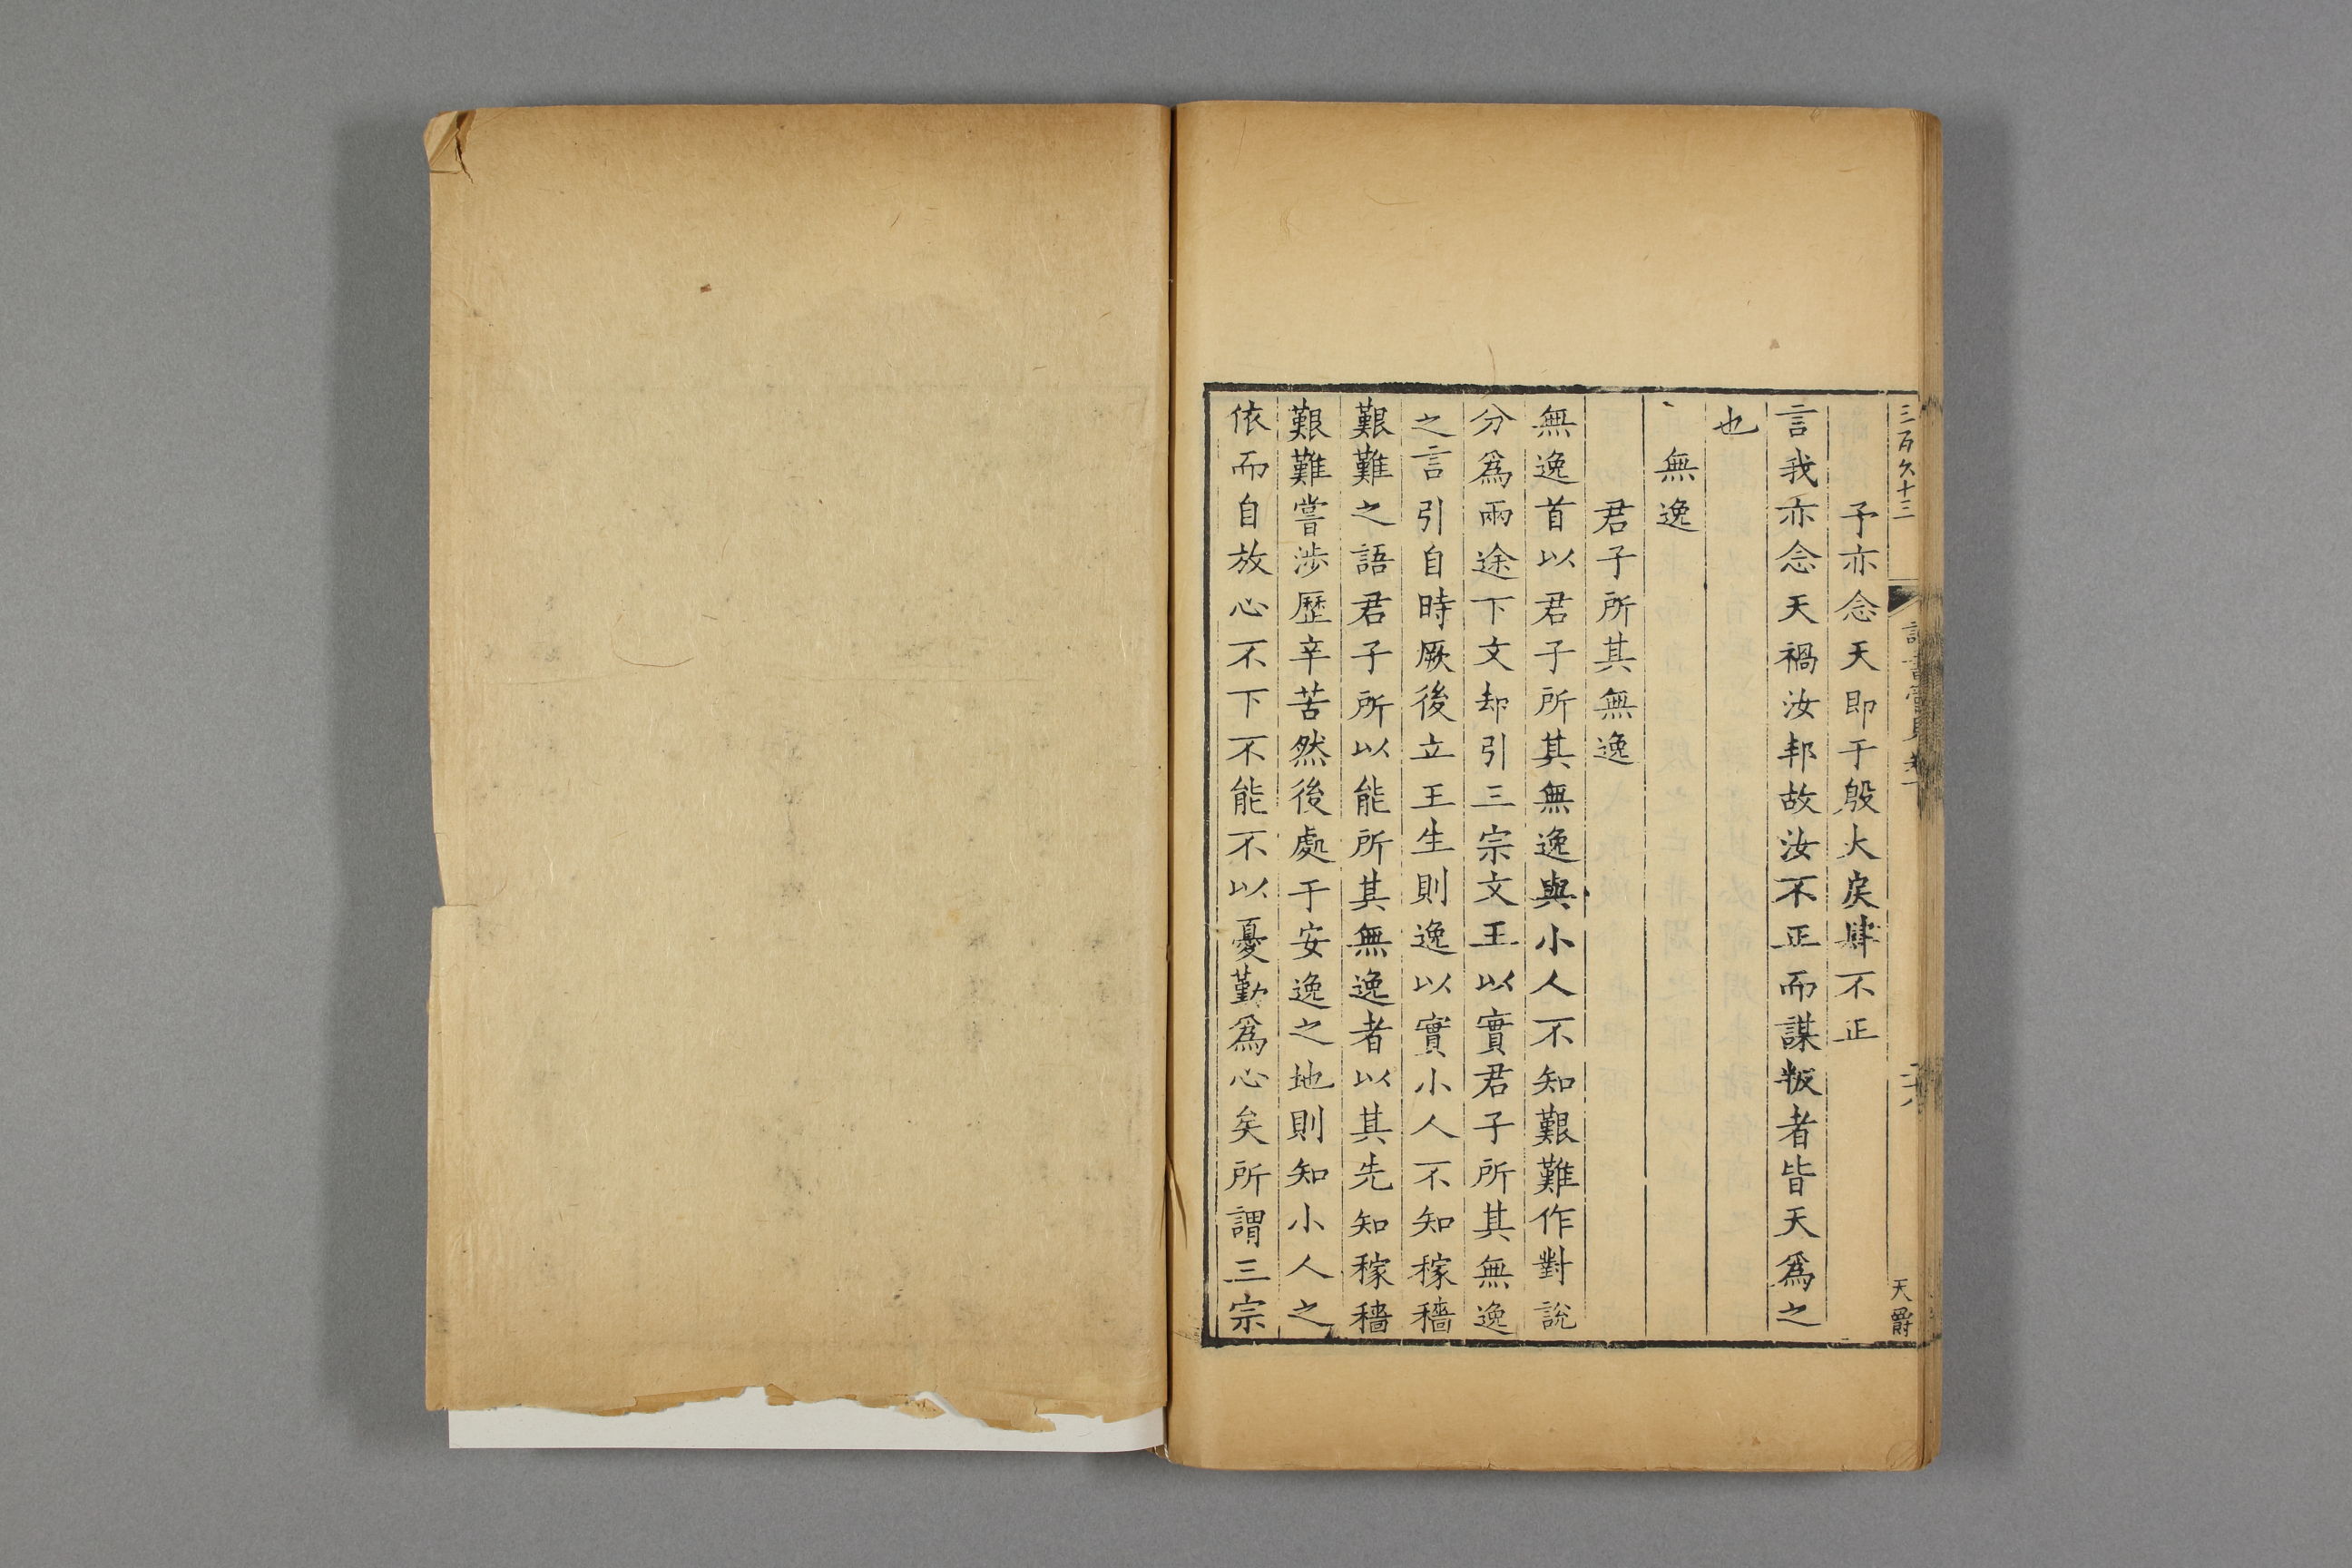 三百九十三
讀書管見卷
天爵
予亦念天即于殷大戾肆不正
言我亦念天禍汝邦故汝不正而謀叛者皆天爲之
也
無逸
君子所其無逸
無逸首以君子所其無逸與小人不知艱難作對說
分爲兩途下文却引三宗文王以實君子所其無逸
之言引自時厥後立王生則逸以實小人不知稼穡
艱難之語君子所以能所其無逸者以其先知稼穡
艱難嘗涉歷辛苦然後處于安逸之地則知小人之
依而自放心不下不能不以憂勤爲心矣所謂三宗